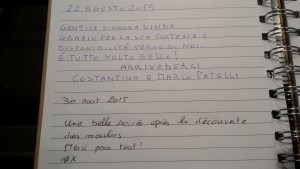 22 AGOSTO 2015
GENTILE SIGNORA LINDA
GRAZIE PER LA SUA CORTESIA E
DISPONIBILITÀ VERSO DI NOI.
È TUTTO MOLTO BELLO!
ARRIVEDERCI
COSTANTINA E MARCO PATELLI
30 août 2015
Une belle soirée après la découverte
des moulins.
Merci pour tout!